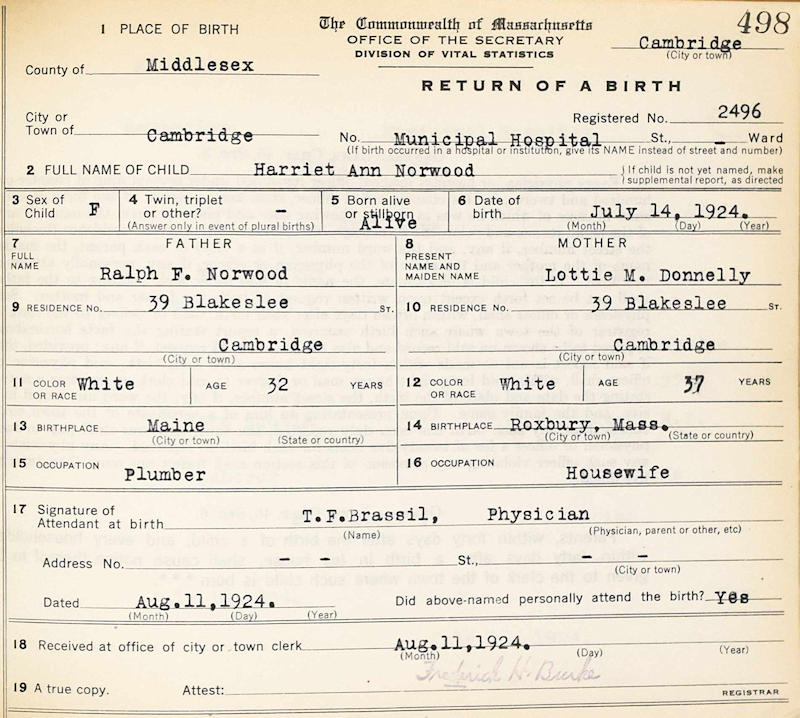 498
1 PLACE OF BIRTH
The Commonwealth of Massachusetts
OFFICE OF THE SECRETARY
DIVISION OF VITAL STATISTICS
Cambridge
(City or town)
County of Middlesex
RETURN OF A BIRTH
Registered No. 2496
City or Town of Cambridge No. Municipal Hospital St., – Ward
(If birth occurred in a hospital or institution, give its NAME instead of street and number)
2 FULL NAME OF CHILD Harriet Ann Norwood
(If child is not yet named, make
supplemental report, as directed
3 Sex of Child F 4 Twin, triplet or other? – 5 Born alive or stillborn Alive 6 Date of birth July 14, 1924.
(Answer only in event of plural births) (Month) (Day) (Year)
7 FATHER
FULL NAME Ralph F. Norwood
8 MOTHER
PRESENT NAME AND MAIDEN NAME Lottie M. Donnelly
9 RESIDENCE NO. 39 Blakeslee ST.
10 RESIDENCE NO. 39 Blakeslee ST.
Cambridge
(City or town)
Cambridge
(City or town)
11 COLOR OR RACE White AGE 32 YEARS
12 COLOR OR RACE White AGE 37 YEARS
13 BIRTHPLACE Maine
(City or town) (State or country)
14 BIRTHPLACE Roxbury, Mass.
(City or town) (State or country)
15 OCCUPATION Plumber
16 OCCUPATION Housewife
17 Signature of Attendant at birth T.F.Brassil, Physician
(Name) (Physician, parent or other, etc)
Address No. – – St., – –
(City or town)
Dated Aug.11,1924. Did above-named personally attend the birth? Yes
(Month) (Day) (Year)
18 Received at office of city or town clerk Aug.11,1924.
(Month) (Day) (Year)
Frederick H. Burke
19 A true copy. Attest: REGISTRAR